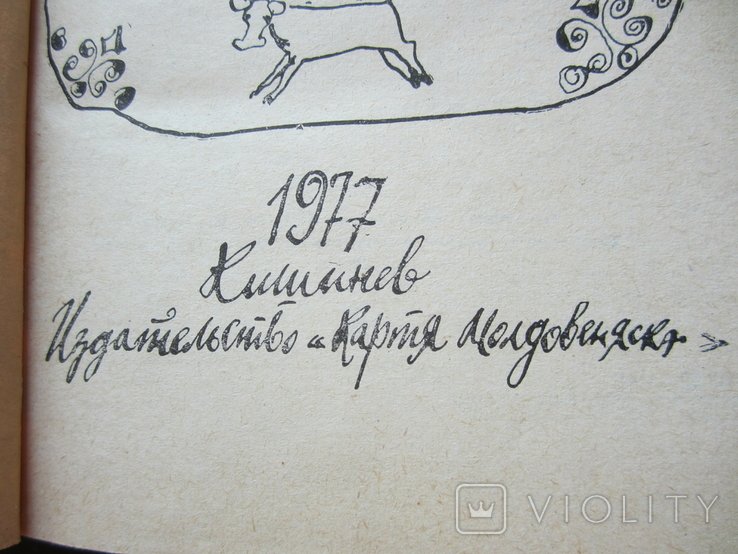 1977
Кишинев
Издательство «Картя Молдовеняскэ»
VIOLITY